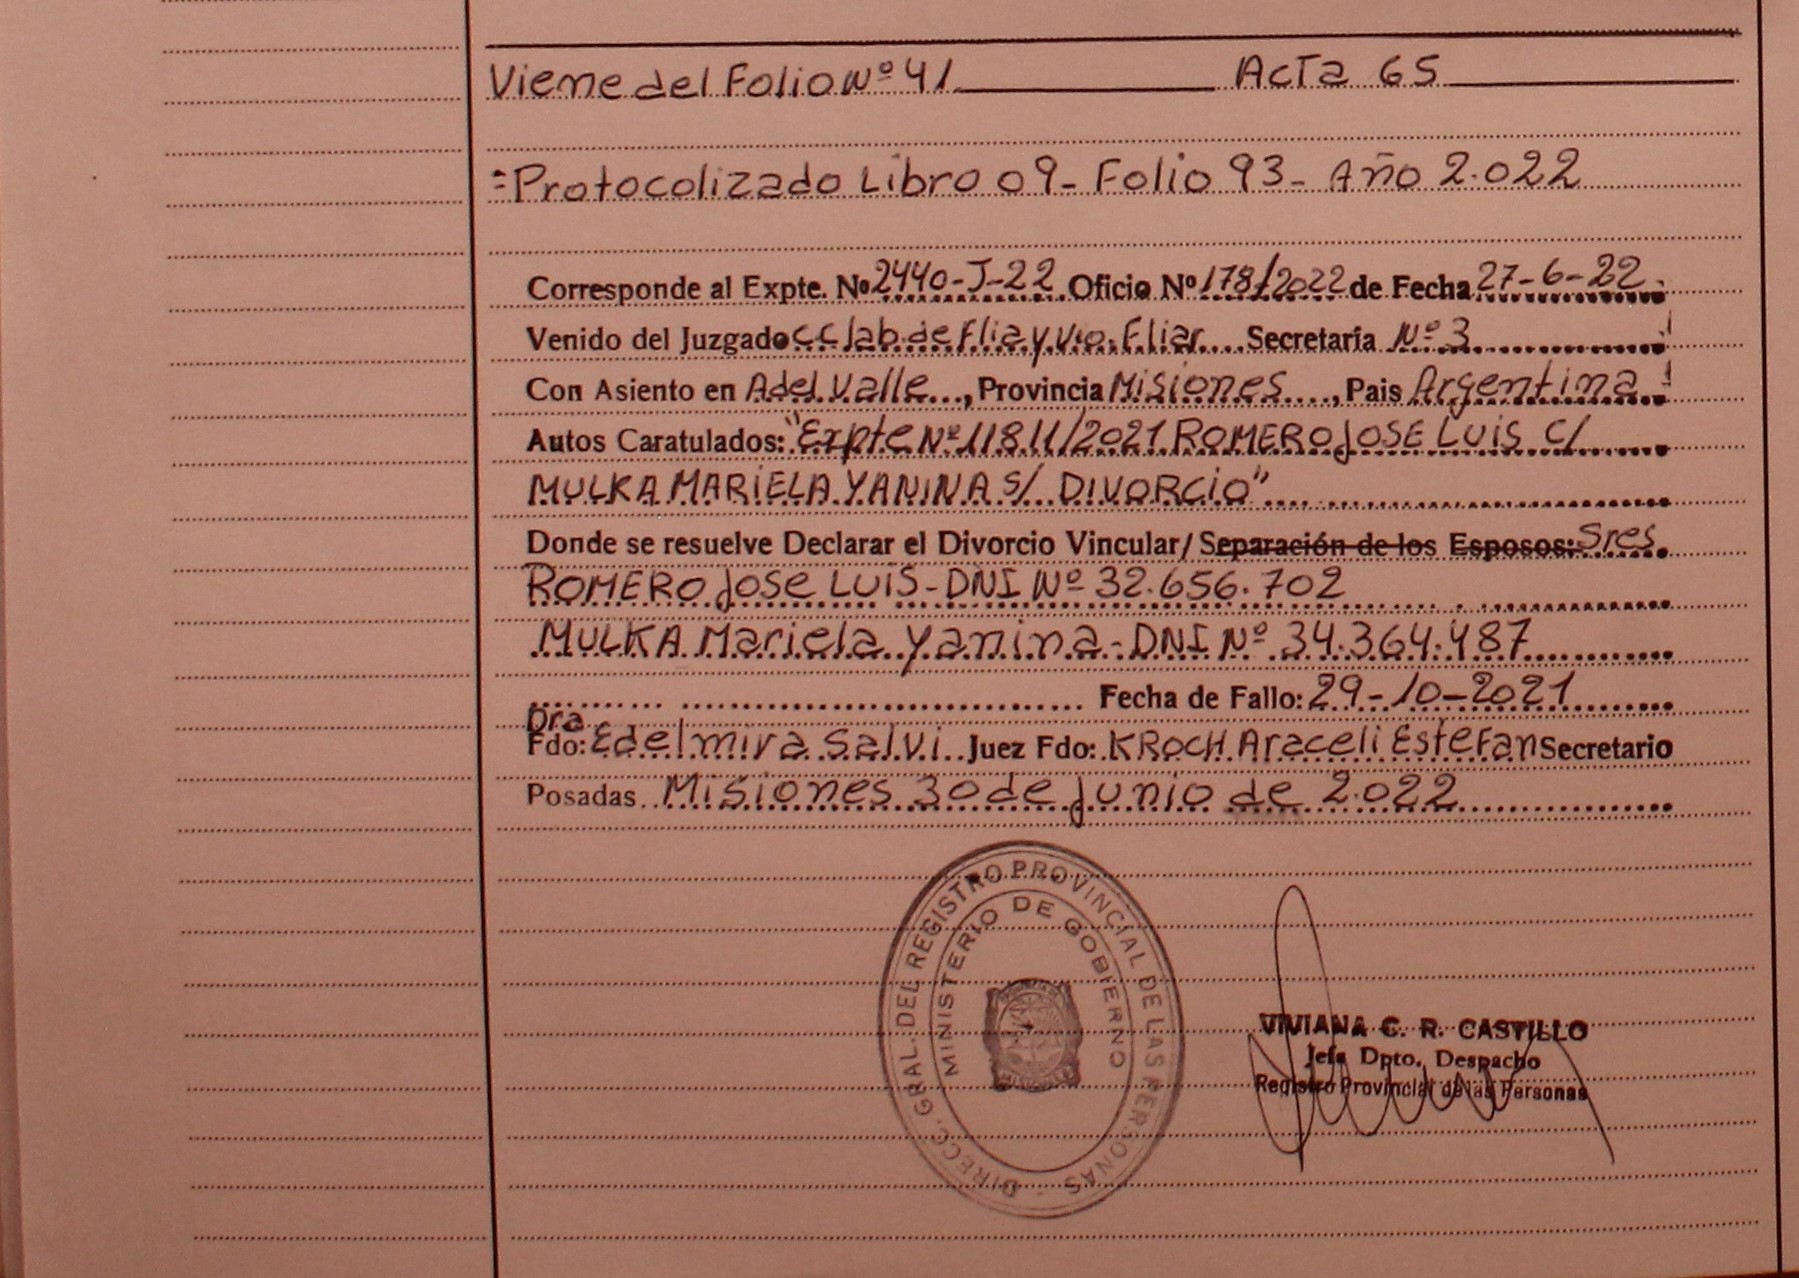 Viene del Folio Nº 41 Acta 65
=Protocolizado Libro 09- Folio 93- Año 2.022
Corresponde al Expte. Nº 2440-J-22 Oficio Nº 178/2022 de Fecha 27-6-22.
Venido del Juzgado CC lab. de Flia y Vio. Fliar Secretaría Nº 3
Con Asiento en A del Valle, Provincia Misiones, Pais Argentina
Autos Caratulados: "Expte Nº 11811/2021 ROMERO JOSE LUIS C/
MULKA MARIELA YANINA S/ DIVORCIO"
Donde se resuelve Declarar el Divorcio Vincular/ Separación de los Esposos: Sres
ROMERO Jose LUIS - DNI Nº 32.656.702
MULKA Mariela Yanina - DNI Nº 34.364.487
Fecha de Fallo: 29-10-2021
Dra
Fdo: Edelmira Salvi Juez Fdo: KROCH Araceli Estefan Secretario
Posadas Misiones 30 de Junio de 2.022
DIRECC. GRAL. DEL REGISTRO PROVINCIAL DE LAS PERSONAS -
MINISTERIO DE GOBIERNO
VIVIANA C. R. CASTILLO
Jefa Dpto. Despacho
Registro Provincial de las Personas